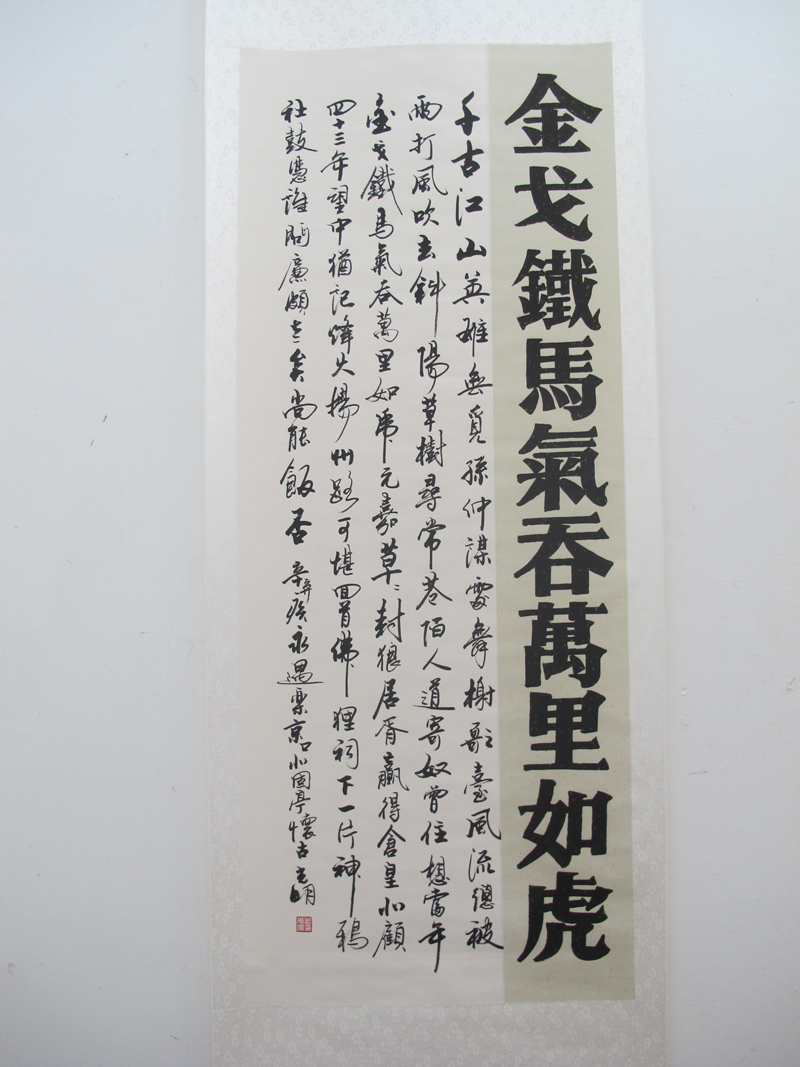 金戈鐵馬氣吞萬里如虎
千古江山英雄無覓孫仲謀處舞榭歌臺風流總被
雨打風吹去斜陽草樹尋常巷陌人道寄奴曾住想當年
金戈鐵馬氣吞萬里如虎元嘉草〻封狼居胥贏得倉皇北顧
四十三年望中猶記烽火揚州路可堪回首佛狸祠下一片神鴉
社鼓憑誰問廉頗老矣尚能飯否 辛棄疾永遇樂京口北固亭懷古